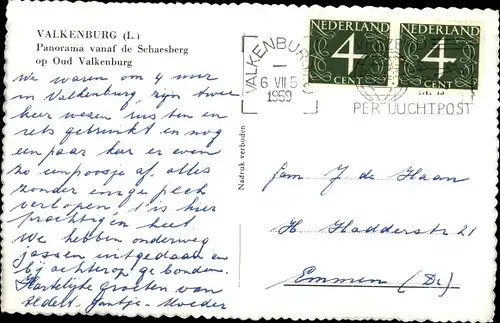 VALKENBURG (L.)
Panorama vanaf de Schaesberg
op Oud Valkenburg
We waren om 4 uur
in Valkenburg, zijn twee
keer wezen rusten en
iets gebruikt en nog
een paar keer er even
zo een poosje af, alles
zonder enige pech
verlopen, 't is hier
prachtig en heet.
We hebben onderweg
jassen uitgedaan en
bij achterop gebonden.
Hartelijke groeten van
Jantje - Moeder
Nadruk verboden
NEDERLAND NEDERLAND
4 4
CENT CENT
VALKENBURG
6 VII 5
1959
PER LUCHTPOST
fam J de Haan
H Hadderstr 21
Emmen (Dr.)